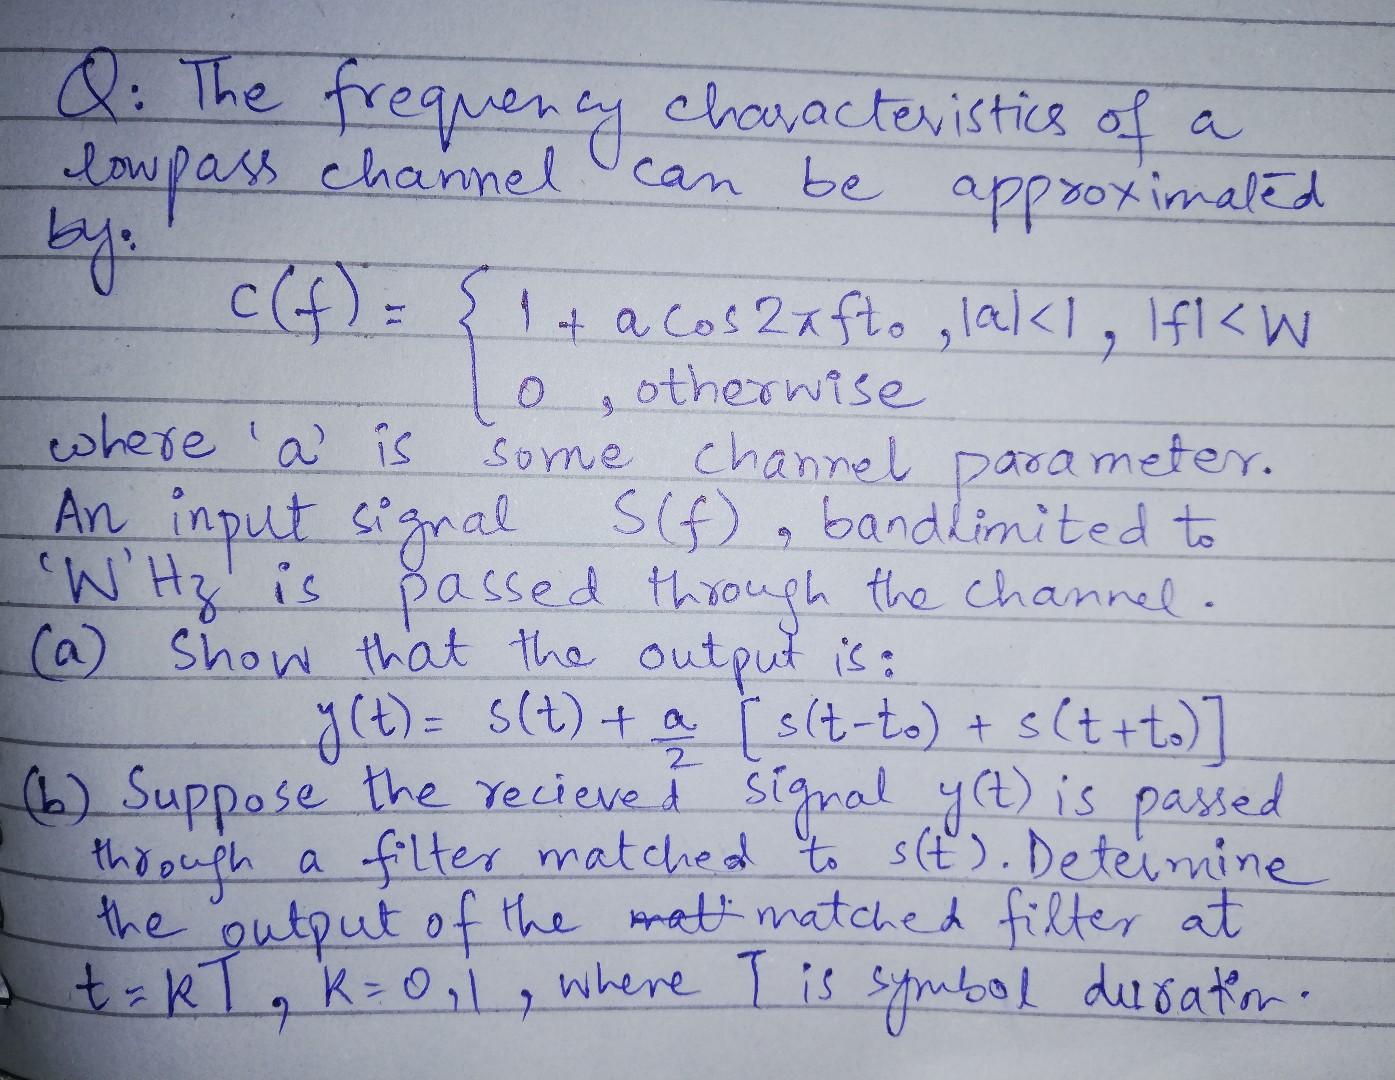 Q: The frequency characteristics of a
lowpass channel can be approximated
by:
c(f) = { 1 + a cos2πft₀ , |a|<1 , |f|<W
0 , otherwise
where 'a' is some channel parameter.
An input signal S(f) , bandlimited to
'W' Hz is passed through the channel.
(a) Show that the output is:
y(t) = s(t) + a/2 [s(t-t₀) + s(t+t₀)]
(b) Suppose the recieved signal y(t) is passed
through a filter matched to s(t). Determine
the output of the matt matched filter at
t = kT , k = 0,1 , where T is symbol duration.